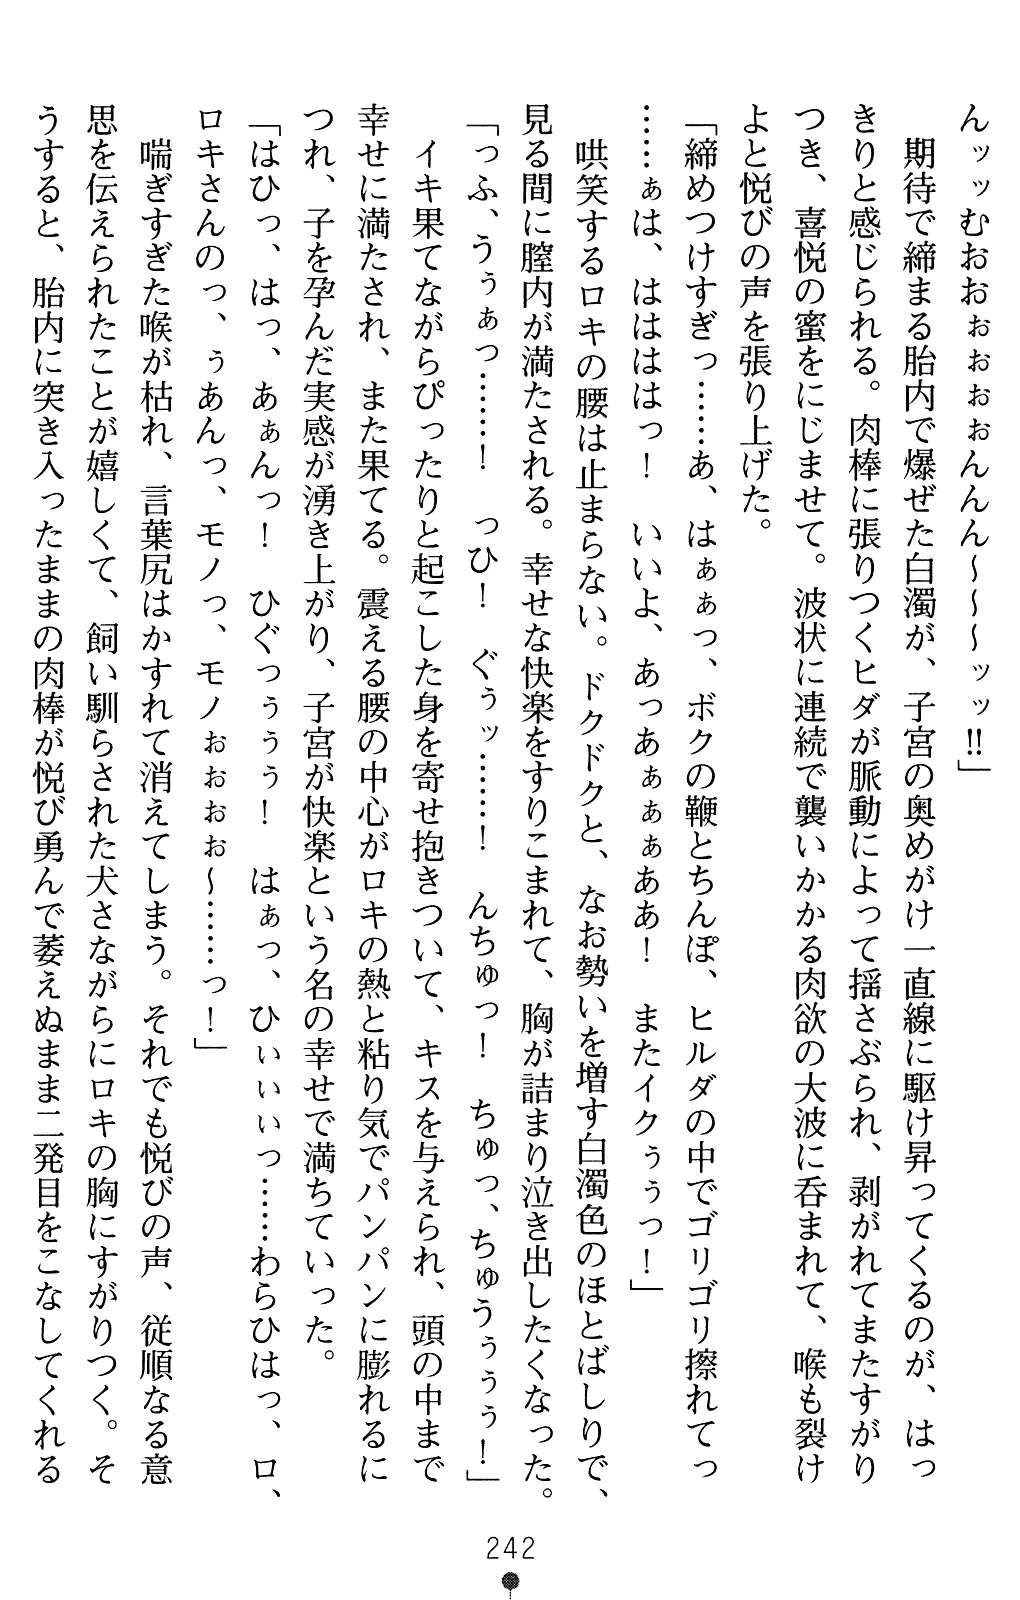 んッッむおおぉぉぉぉんんん～～～ッッ!!」
期待で締まる胎内で爆ぜた白濁が、子宮の奥めがけ一直線に駆け昇ってくるのが、はっ
きりと感じられる。肉棒に張りつくヒダが脈動によって揺さぶられ、剥がれてまたすがり
つき、喜悦の蜜をにじませて。波状に連続で襲いかかる肉欲の大波に呑まれて、喉も裂け
よと悦びの声を張り上げた。
「締めつけすぎっ……あ、はぁぁっ、ボクの鞭とちんぽ、ヒルダの中でゴリゴリ擦れてっ
……ぁは、はははは っ！　いいよ、あっあぁぁぁああ！　またイクぅぅっ！」
哄笑するロキの腰は止まらない。ドクドクと、なお勢いを増す白濁色のほとばしりで、
見る間に膣内が満たされる。幸せな快楽をすりこまれて、胸が詰まり泣き出したくなった。
「っふ、うぅぁっ……！　っひ！　ぐぅッ……！　んちゅっ！　ちゅっ、ちゅうぅぅぅ！」
イキ果てながらぴったりと起こした身を寄せ抱きついて、キスを与えられ、頭の中まで
幸せに満たされ、また果てる。震える腰の中心がロキの熱と粘り気でパンパンに膨れるに
つれ、子を孕んだ実感が湧き上がり、子宮が快楽という名の幸せで満ちていった。
「はひっ、はっ、あぁんっ！　ひぐっぅぅぅ！　はぁっ、ひぃぃぃっ……わらひはっ、ロ、
ロキさんのっ、ぅあんっ、モノっ、モノぉぉぉぉ～……っ！」
喘ぎすぎた喉が枯れ、言葉尻はかすれて消えてしまう。それでも悦びの声、従順なる意
思を伝えられたことが嬉しくて、飼い馴らされた犬さながらにロキの胸にすがりつく。そ
うすると、胎内に突き入ったままの肉棒が悦び勇んで萎えぬまま二発目をこなしてくれる
242